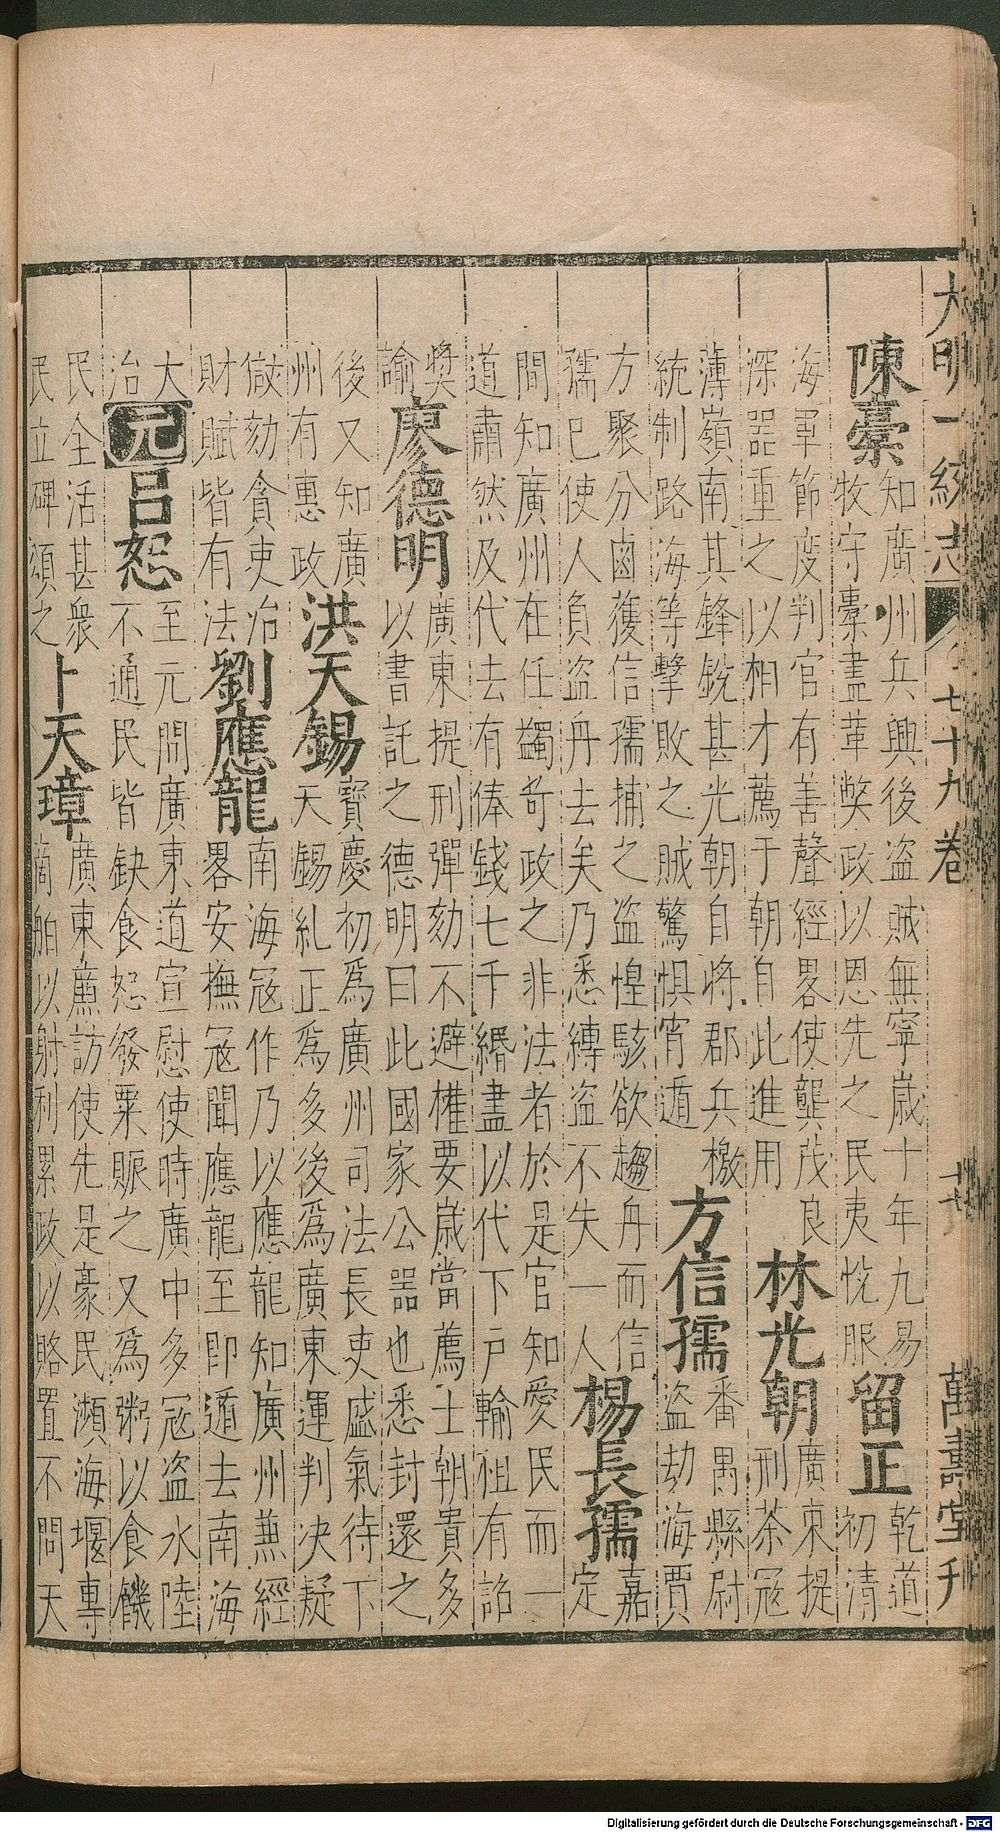 大明一統志 七十九卷 十六 萬壽堂刋
陳橐 知廣州兵興後盜賊無寧歲十年九易
牧守橐盡革獘政以恩先之民夷恱服 留正 乾道
初清
海軍節度判官有善聲經畧使龔茂良
深噐重之以相才薦于朝自此進用 林光朝 廣東提
刑茶冦
薄嶺南其鋒銳甚光朝自將郡兵檄
統制路海等擊敗之賊驚惧宵遁 方信孺 番禺縣尉
盜劫海賈
方聚分鹵獲信孺捕之盜惶駭欲趨舟而信
孺已使人負盜舟去矣乃悉縛盜不失一人 楊長孺 嘉
定
間知廣州在任蠲苛政之非法者於是官知愛民而一
道肅然及代去有俸錢七千緡盡以代下户輸租有詔
奬
諭 廖德明 廣東提刑彈劾不避權要歲當薦士朝貴多
以書託之德明曰此國家公噐也悉封還之
後又知廣
州有惠政 洪天錫 寳慶初爲廣州司法長吏盛氣待下
天錫糾正爲多後爲廣東運判决疑
獄劾貪吏治
財賦皆有法 劉應龍 南海冦作乃以應龍知廣州兼經
畧安撫冦聞應龍至即遁去南海
大
治 元 吕恕 至元間廣東道宣慰使時廣中多冦盜水陸
不通民皆缺食恕發粟賑之又爲粥以食饑
民全活甚衆
民立碑頌之 卜天璋 廣東廉訪使先是豪民瀕海堰專
商舶以射利累政以賂置不問天